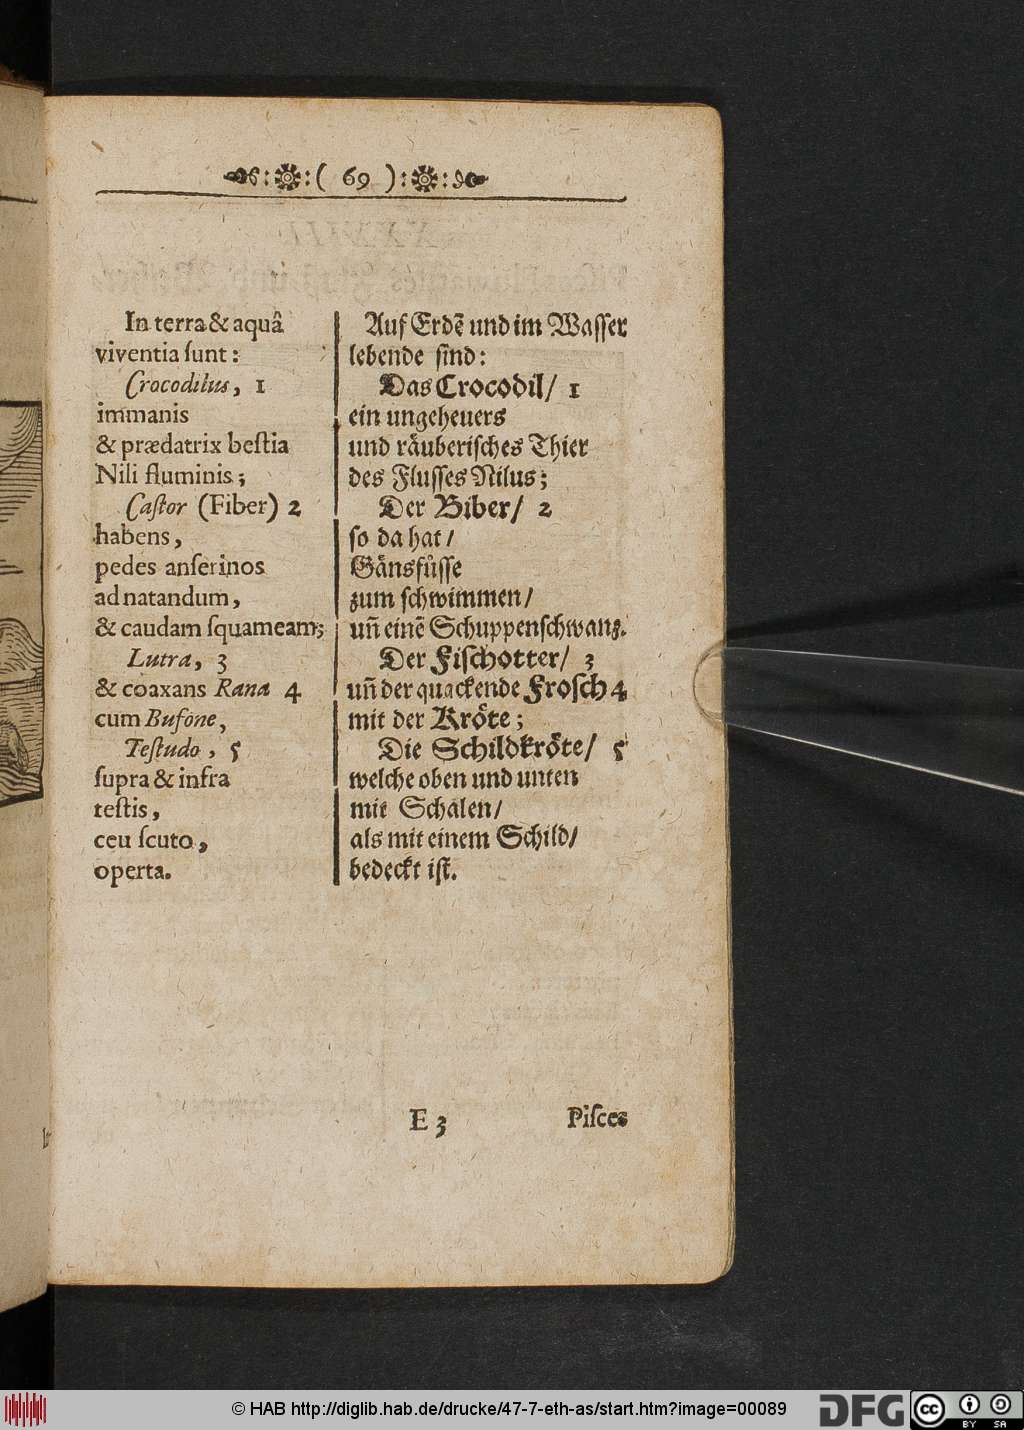 ( 69 )
In terra & aquâ
viventia ſunt:
Crocodilus, 1
immanis
& prædatrix beſtia
Nili fluminis;
Caſtor (Fiber) 2
habens,
pedes anſerinos
ad natandum,
& caudam ſquameam;
Lutra, 3
& coaxans Rana 4
cum Bufone,
Teſtudo, 5
ſupra & infra
teſtis,
ceu ſcuto,
operta.
Auf Erdē und im Waſſer
lebende ſind:
Das Crocodil/ 1
ein ungeheuers
und raͤuberiſches Thier
des Fluſſes Nilus;
Der Biber/ 2
ſo da hat/
Gaͤnsfuͤſſe
zum ſchwimmen/
uñ einē Schuppenſchwanz.
Der Fiſchotter/ 3
uñ der quackende Froſch 4
mit der Kroͤte;
Die Schildkroͤte/ 5
welche oben und unten
mit Schalen/
als mit einem Schild/
bedeckt iſt.
E 3
Piſces
© HAB http://diglib.hab.de/drucke/47-7-eth-as/start.htm?image=00089
DFG
cc
BY SA